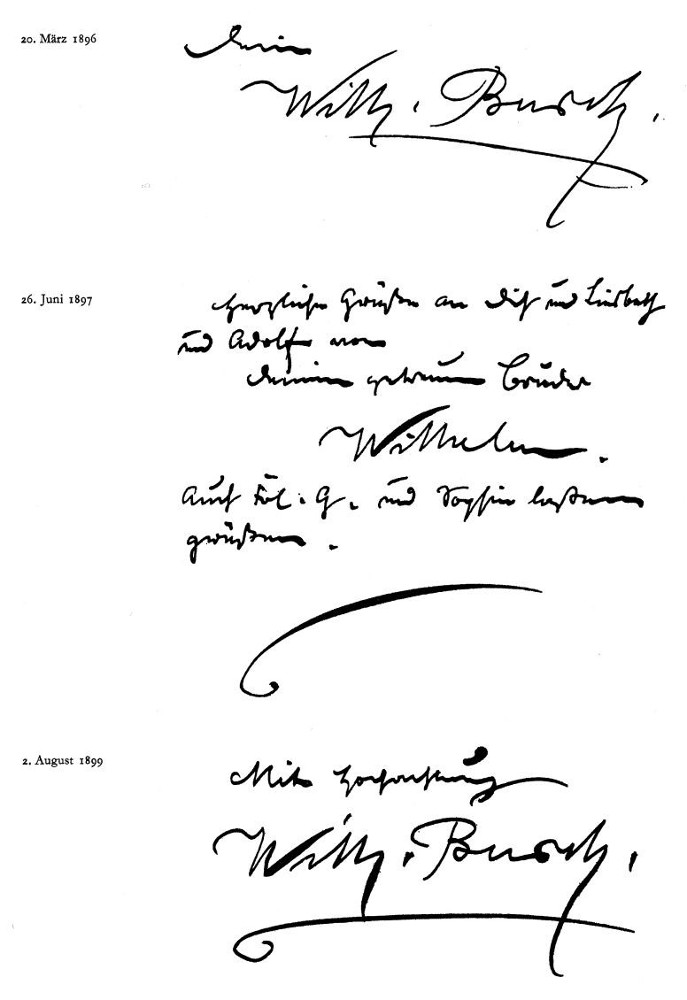 20. März 1896
Dein
Wilh. Busch.
26. Juni 1897
Herzliche Grüße an Dich und Liesbeth
und Adolf von
Deinem getreuen Bruder
Wilhelm.
Auch Frl. G. und Sophie laßen
grüßen.
2. August 1899
Mit Hochachtung
Wilh. Busch.